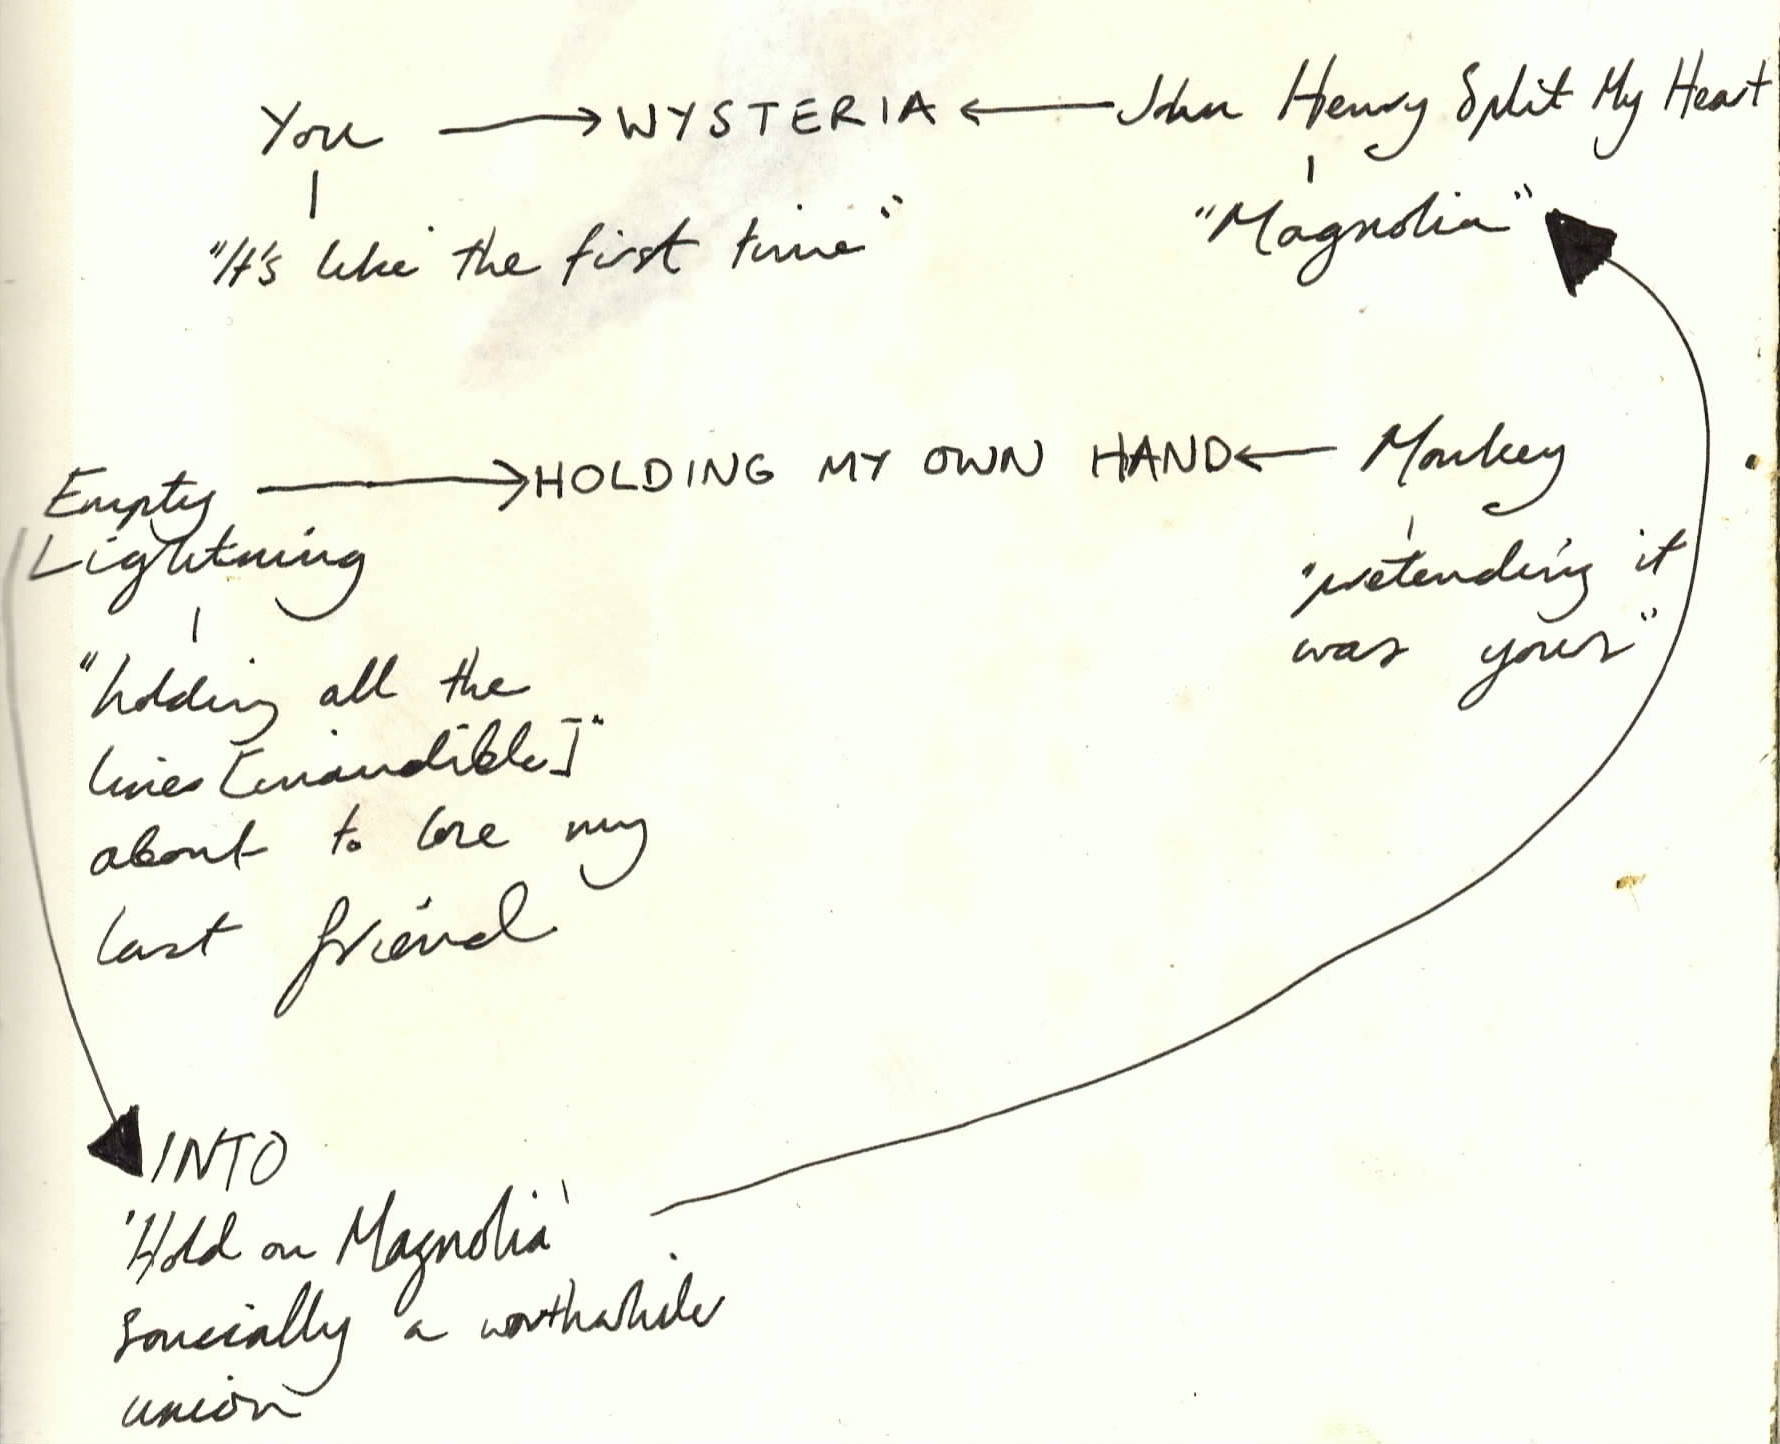 You → WYSTERIA ← John Henry Split My Heart
"It's like the first time"
"Magnolia"
Empty → HOLDING MY OWN HAND ← Monkey
Lightning
"pretending it
was yours"
"holding all the
lines [inaudible]"
about to lose my
last friend
INTO
'Hold on Magnolia'
a worthwhile
union